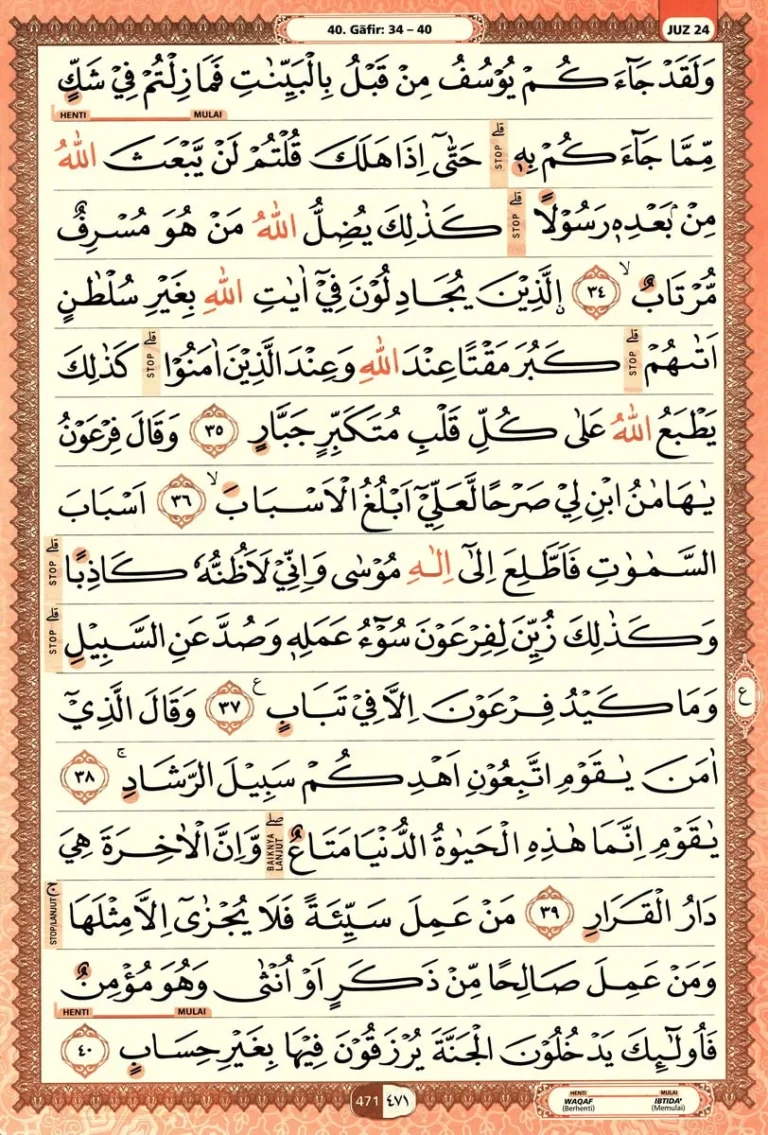 40. Gāfir: 34 – 40
JUZ 24
وَلَقَدْ جَاۤءَكُمْ يُوْسُفُ مِنْ قَبْلُ بِالْبَيِّنٰتِ فَمَا زِلْتُمْ فِيْ شَكٍّ
HENTI MULAI
مِّمَّا جَاۤءَكُمْ بِهٖ ۗ STOP حَتّٰىٓ اِذَا هَلَكَ قُلْتُمْ لَنْ يَّبْعَثَ اللّٰهُ
مِنْۢ بَعْدِهٖ رَسُوْلًا ۗ STOP كَذٰلِكَ يُضِلُّ اللّٰهُ مَنْ هُوَ مُسْرِفٌ
مُّرْتَابٌ ۙ ٣٤ اِۨلَّذِيْنَ يُجَادِلُوْنَ فِيْٓ اٰيٰتِ اللّٰهِ بِغَيْرِ سُلْطٰنٍ
اَتٰىهُمْ ۗ STOP كَبُرَ مَقْتًا عِنْدَ اللّٰهِ وَعِنْدَ الَّذِيْنَ اٰمَنُوْا ۗ STOP كَذٰلِكَ
يَطْبَعُ اللّٰهُ عَلٰى كُلِّ قَلْبِ مُتَكَبِّرٍ جَبَّارٍ ٣٥ وَقَالَ فِرْعَوْنُ
يٰهَامٰنُ ابْنِ لِيْ صَرْحًا لَّعَلِّيْٓ اَبْلُغُ الْاَسْبَابَ ۙ ٣٦ اَسْبَابَ
السَّمٰوٰتِ فَاَطَّلِعَ اِلٰٓى اِلٰهِ مُوْسٰى وَاِنِّيْ لَاَظُنُّهٗ كَاذِبًا ۗ STOP
وَكَذٰلِكَ زُيِّنَ لِفِرْعَوْنَ سُوْۤءُ عَمَلِهٖ وَصُدَّ عَنِ السَّبِيْلِ ۗ STOP
وَمَا كَيْدُ فِرْعَوْنَ اِلَّا فِيْ تَبَابٍ ࣖ ٣٧ وَقَالَ الَّذِيْٓ
ع
اٰمَنَ يٰقَوْمِ اتَّبِعُوْنِ اَهْدِكُمْ سَبِيْلَ الرَّشَادِ ۚ ٣٨
يٰقَوْمِ اِنَّمَا هٰذِهِ الْحَيٰوةُ الدُّنْيَا مَتَاعٌ ۖ BAIKNYA LANJUT وَّاِنَّ الْاٰخِرَةَ هِيَ
دَارُ الْقَرَارِ ٣٩ مَنْ عَمِلَ سَيِّئَةً فَلَا يُجْزٰىٓ اِلَّا مِثْلَهَا ۚ STOP/LANJUT
وَمَنْ عَمِلَ صَالِحًا مِّنْ ذَكَرٍ اَوْ اُنْثٰى وَهُوَ مُؤْمِنٌ
HENTI MULAI
فَاُولٰۤىِٕكَ يَدْخُلُوْنَ الْجَنَّةَ يُرْزَقُوْنَ فِيْهَا بِغَيْرِ حِسَابٍ ٤٠
471 ٤٧١
HENTI MULAI
WAQAF IBTIDA'
(Berhenti) (Memulai)